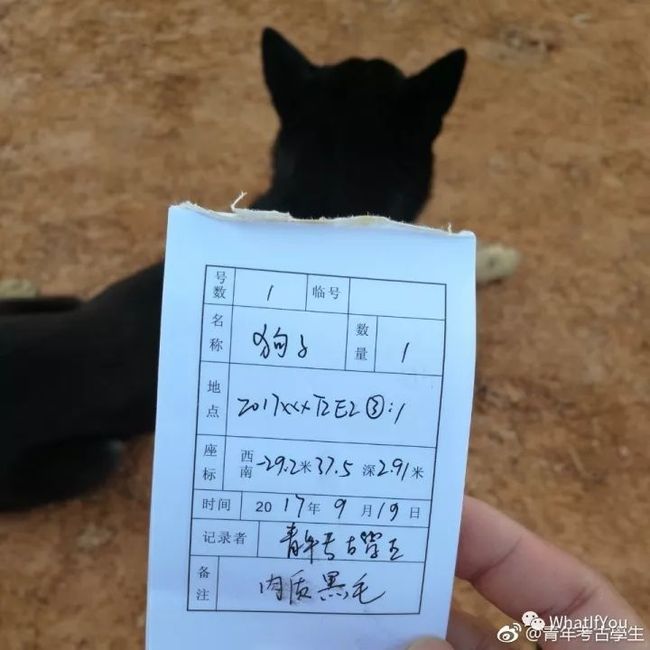 号数 1 临号
名称 狗子 数量 1
地点 2017xxxT2E2③:1
座标 西南 -29.2米 37.5 深2.91米
时间 2017年9月19日
记录者 青年考古学生
备注 肉质 黑毛
WhatIfYou
@青年考古學生